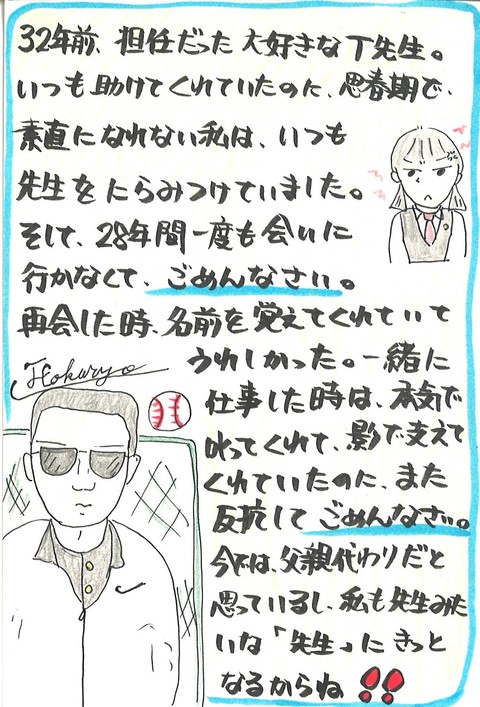 32年前、担任だった大好きなT先生。
いつも助けてくれていたのに、思春期で、
素直になれない私は、いつも
先生をにらみつけていました。
そして、28年間一度も会いに
行かなくて、ごめんなさい。
再会した時、名前を覚えてくれていて
うれしかった。一緒に
仕事した時は、本気で
叱ってくれて、影で支えて
くれていたのに、また
反抗してごめんなさい。
今では、父親代わりだと
思っているし、私も先生みた
いな「先生」にきっと
なるからね!!